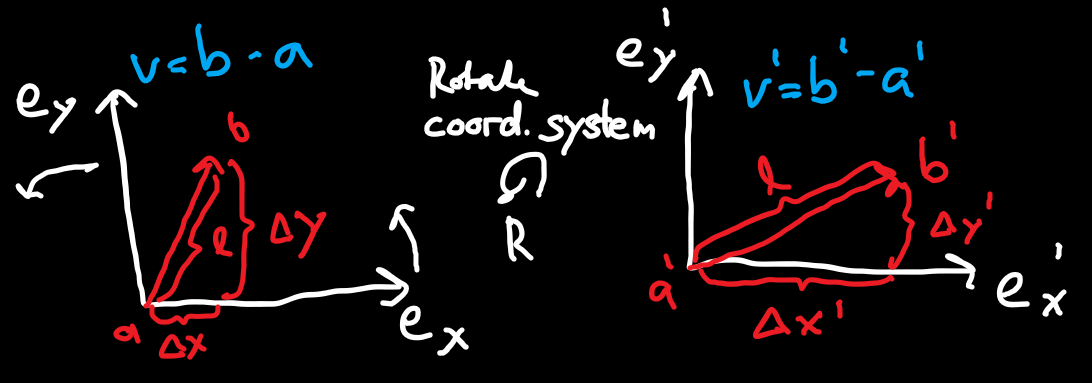 v=b-a
e_y
b
l
Δy
a
Δx
e_x
Rotate
coord. system
R
e_y'
v'=b'-a'
b'
l
Δy'
a'
Δx'
e_x'